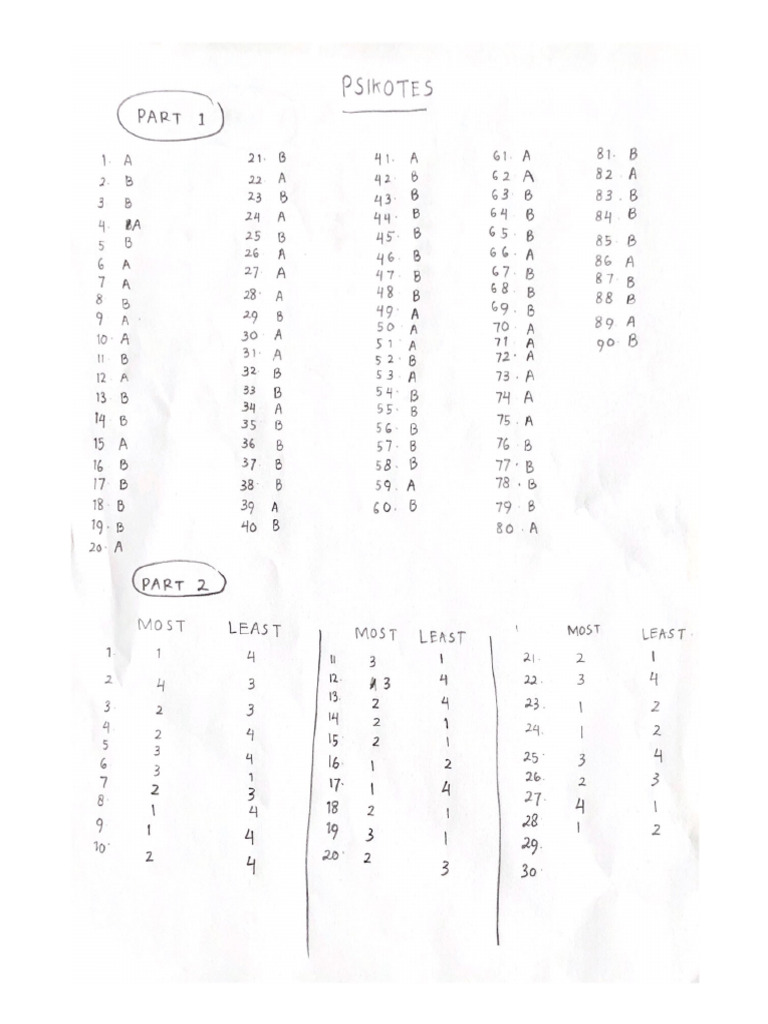 PSIKOTES
PART 1
1. A
2. B
3 B
4. A
5 B
6 A
7 A
8 B
9 A
10. A
11. B
12 A
13. B
14 B
15 A
16 B
17. B
18. B
19. B
20. A
21. B
22 A
23 B
24 A
25 B
26 A
27. A
28. A
29 B
30 A
31. A
32 B
33 B
34 A
35 B
36 B
37. B
38. B
39 A
40 B
41. A
42. B
43. B
44. B
45. B
46. B
47. B
48 B
49. A
50 A
51. A
52. B
53. A
54. B
55. B
56. B
57. B
58. B
59. A
60. B
61. A
62 A
63. B
64 B
65. B
66. A
67. B
68. B
69. B
70 A
71 A
72. A
73. A
74 A
75. A
76 B
77. B
78. B
79 B
80. A
81. B
82 A
83. B
84. B
85. B
86 A
87. B
88 B
89 A
90. B
PART 2
MOST LEAST
1. 1 4
2 4 3
3. 2 3
4. 2 4
5 3 4
6 3 1
7 2 3
8. 1 4
9. 1 4
10. 2 4
MOST LEAST
11 3 1
12. 3 4
13. 2 4
14 2 1
15. 2 1
16. 1 2
17. 1 4
18 2 1
19 3 1
20. 2 3
MOST LEAST.
21. 2 1
22. 3 4
23. 1 2
24. 1 2
25. 3 4
26. 2 3
27. 4 1
28 1 2
29.
30.